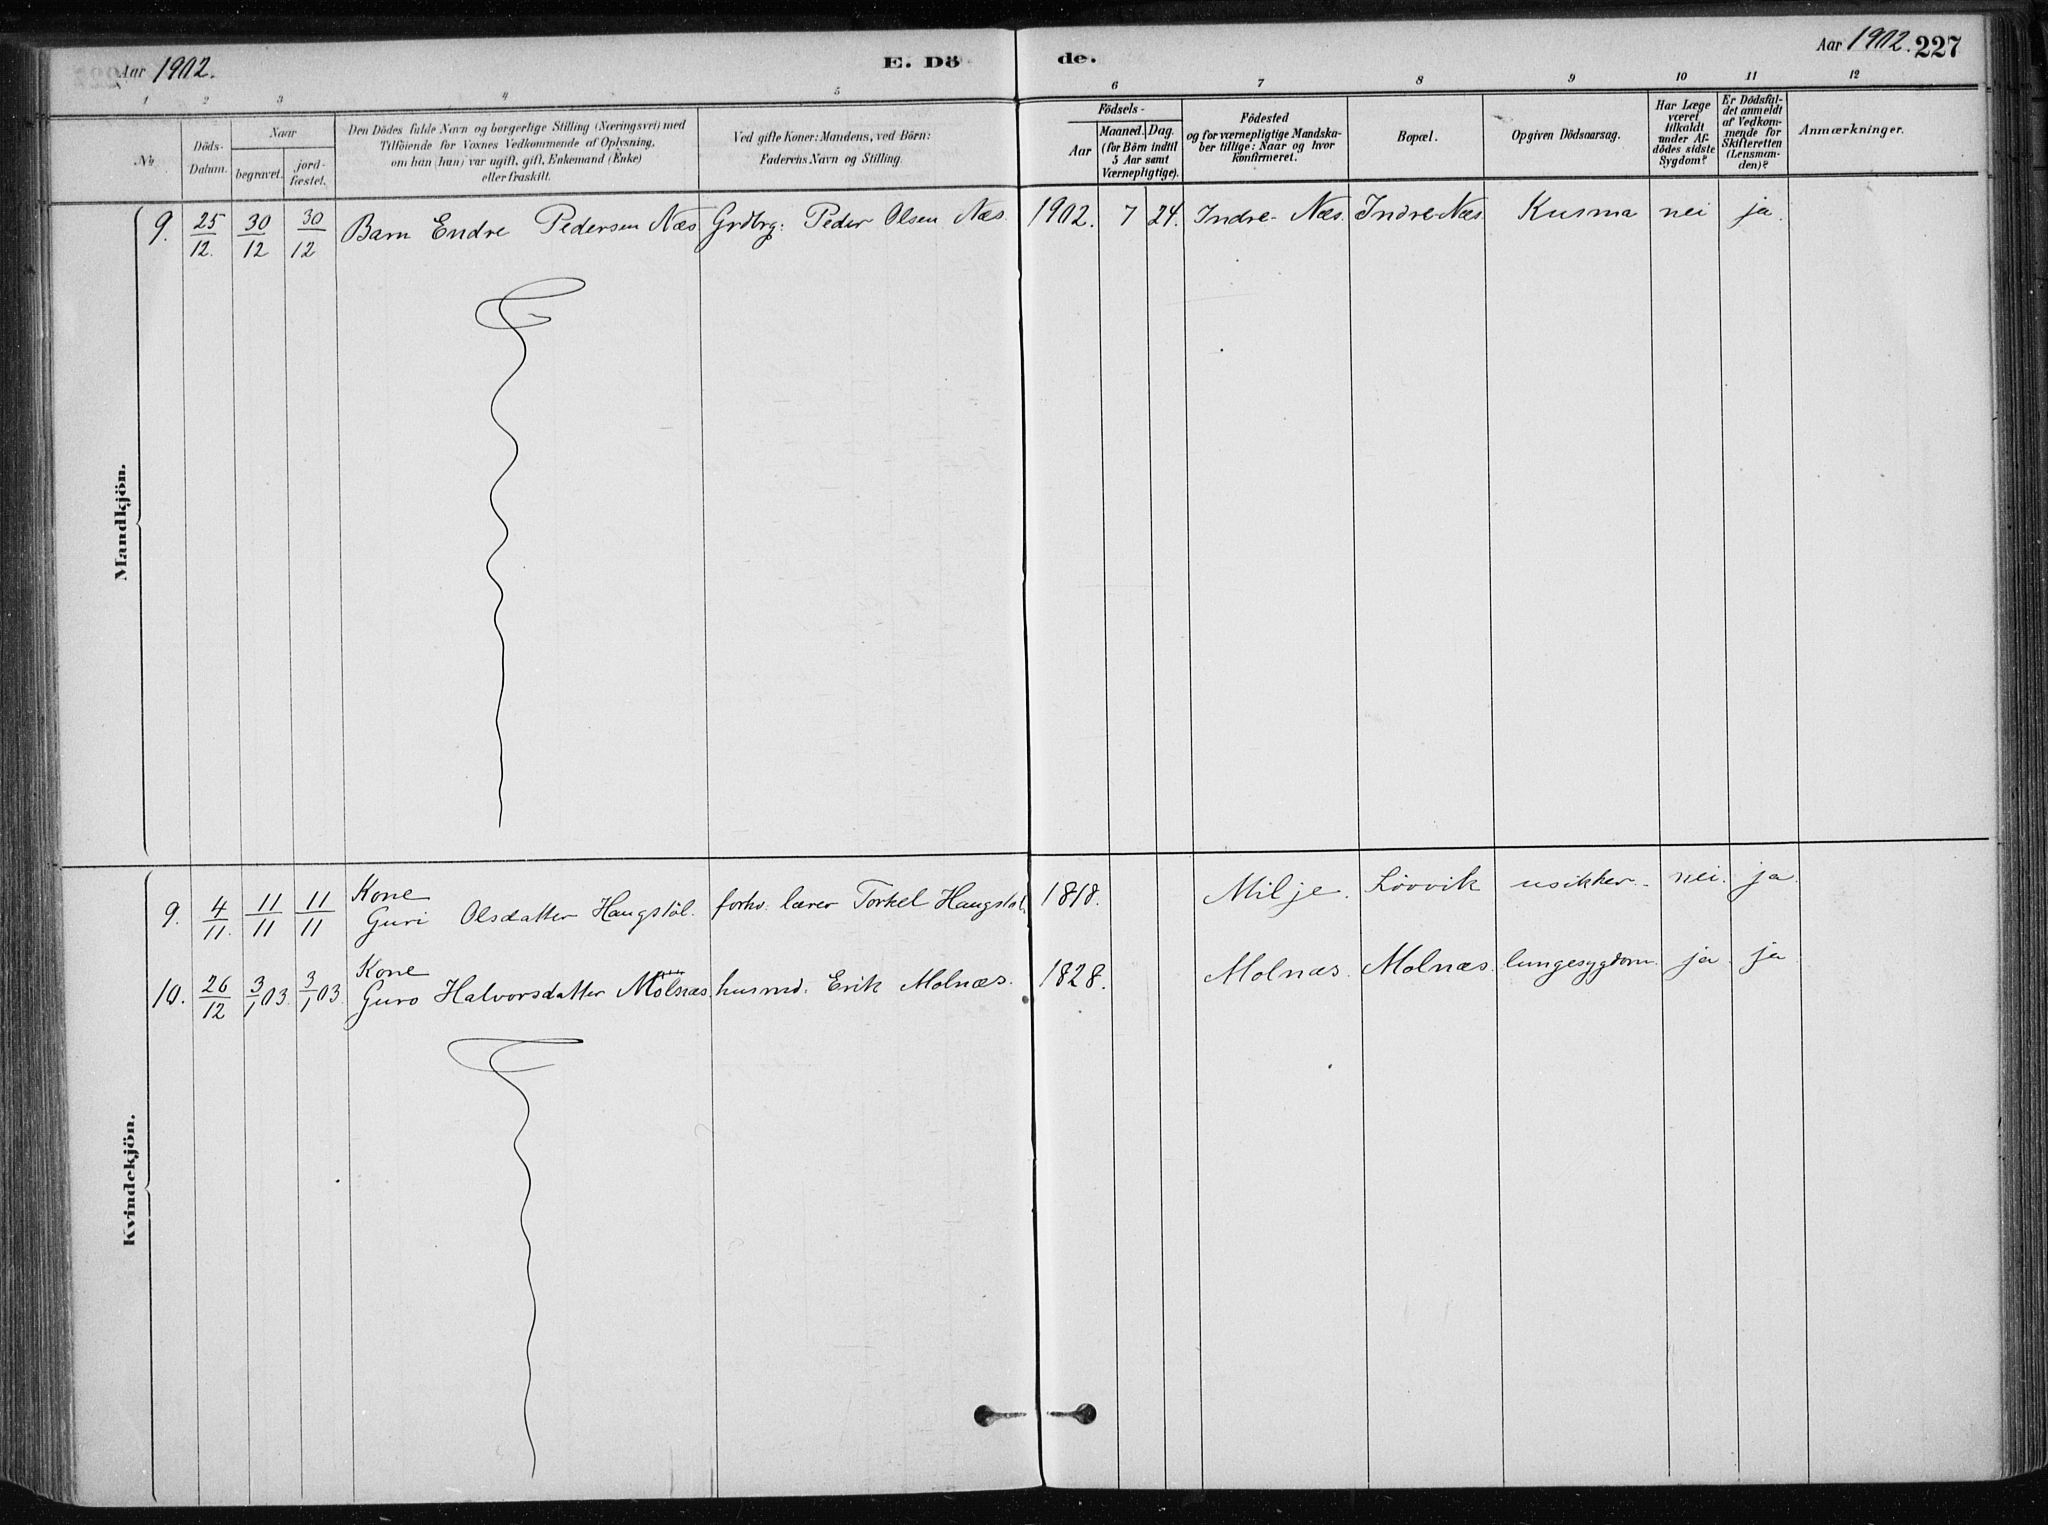 Aar 1902. E. Dö de. Aar 1902. 227
1 2 3 4 5 6 7 8 9 10 11 12
No.
Döds-
Datum.
Naar
begravet.
jord-
fæstet.
Den Dödes fulde Navn og borgerlige Stilling (Næringsvei) med
Tilföiende for Voxnes Vedkommende af Oplysning,
om han (hun) var ugift, gift, Enkemand (Enke)
eller fraskilt.
Ved gifte Koner: Mandens, ved Börn:
Faderens Navn og Stilling.
Födsels-
Aar
Maaned. Dag.
(for Börn indtil
5 Aar samt
Værnepligtige).
Födested
og for værnepligtige Mandska-
ber tillige: Naar og hvor
konfirmeret.
Bopæl.
Opgiven Dödsaarsag.
Har Læge
været
tilkaldt
under Af-
dödes sidste
Sygdom?
Er Dödsfal-
det anmeldt
af Vedkom-
mende for
Skifteretten
(Lensman-
den)?
Anmærkninger.
Mandkjön.
9. 25/12. 30/12 30/12 Barn Endre Pedersen Næs Grdbrg: Peder Olsen Næs. 1902. 7 24. Indre-Næs. Indre-Næs Kusma nei ja.
Kvindekjön.
Kone
9. 4/11. 11/11 11/11 Guri Olsdatter Haugstöl. forhv. lærer Torkel Haugstöl. 1818. Milje. Lövvik usikker. nei. ja.
Kone
10. 26/12 3/1 03. 3/1 03. Guro Halvorsdatter Molnæs. husmd. Erik Molnæs. 1828. Molnæs. Molnæs. lungesygdom. ja. ja.